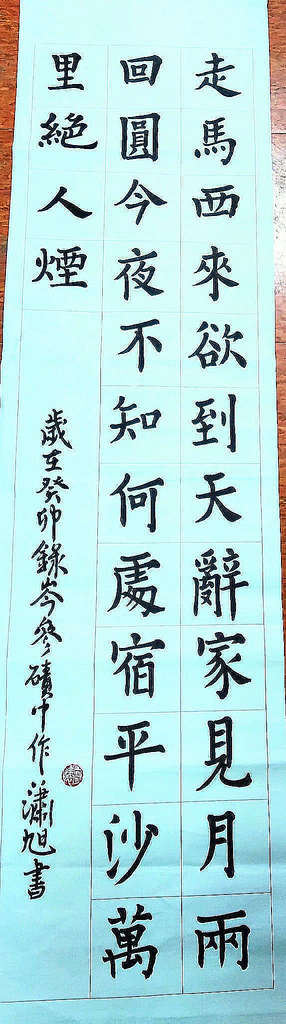 走馬西來欲到天辭家見月兩
回圓今夜不知何處宿平沙萬
里絕人煙
歲在癸卯錄岑參磧中作瀟旭書